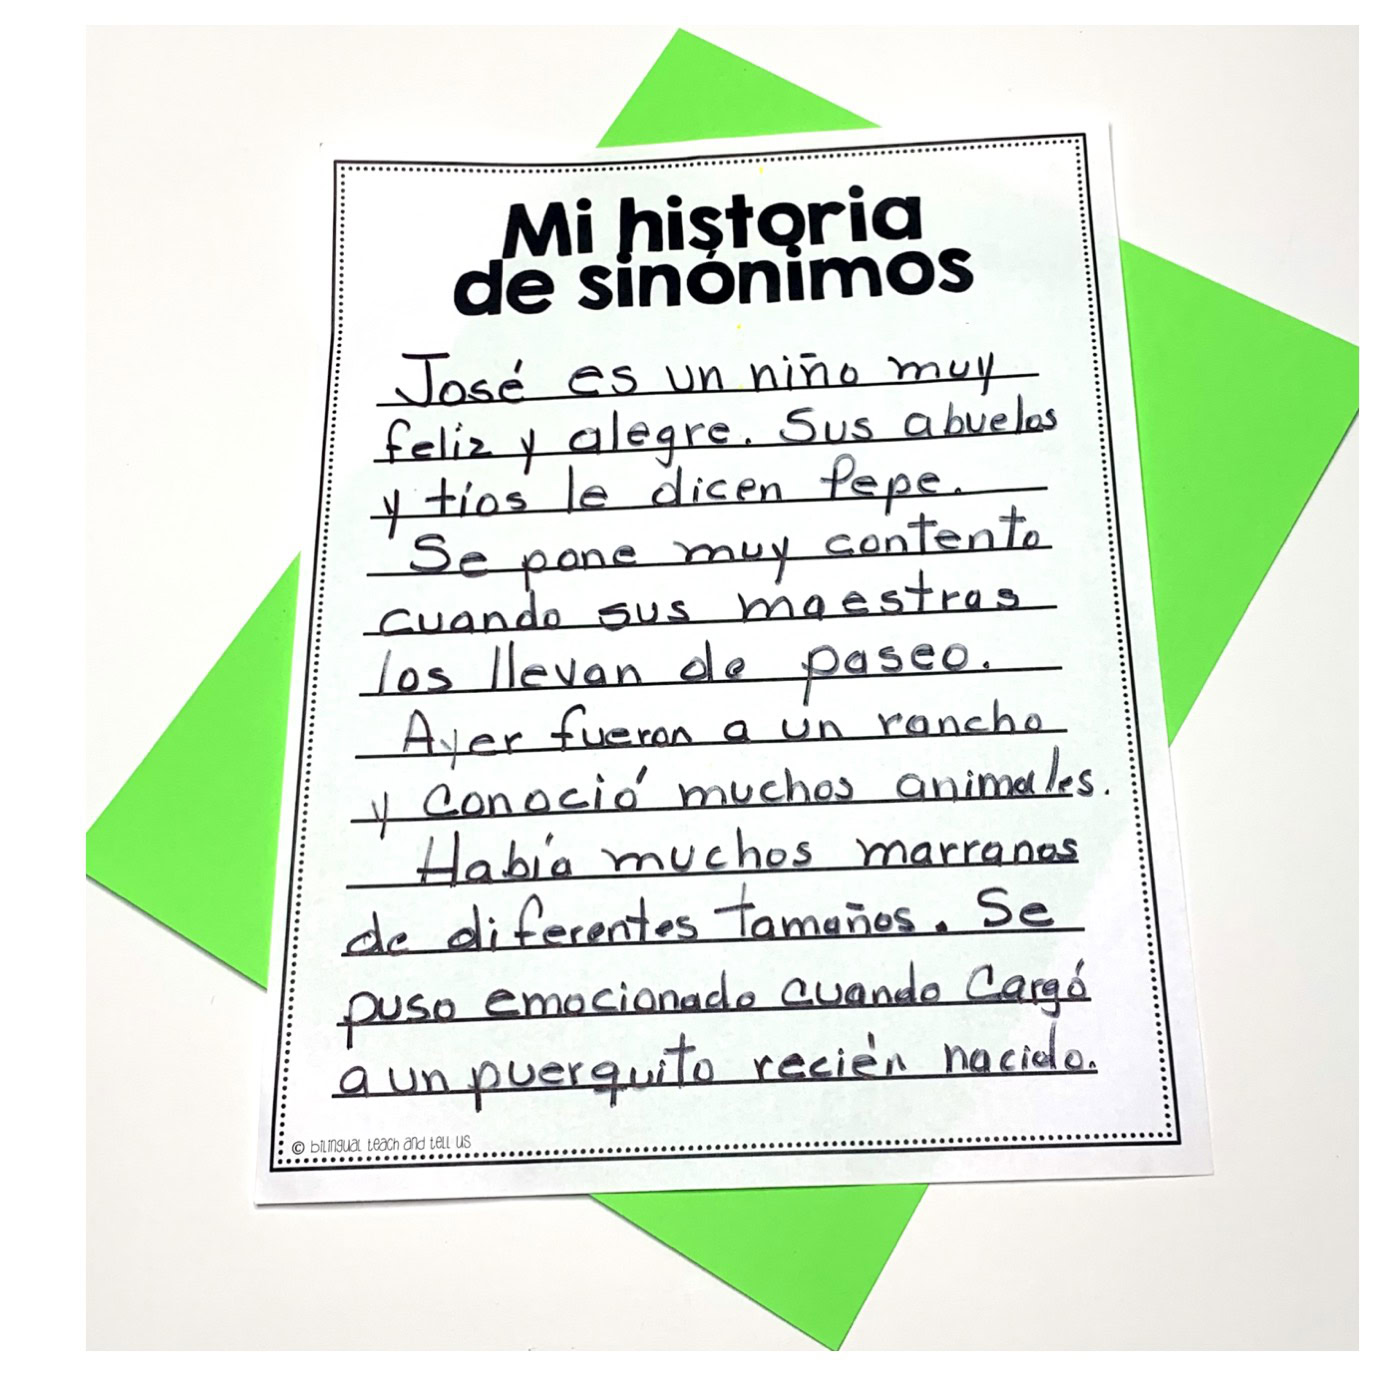 Mi historia
de sinónimos
José es un niño muy
feliz y alegre. Sus abuelos
y tíos le dicen Pepe.
Se pone muy contento
cuando sus maestras
los llevan de paseo.
Ayer fueron a un rancho
y conoció muchos animales.
Había muchos marranos
de diferentes tamaños. Se
puso emocionado cuando cargó
a un puerquito recién nacido.
© bilingual teach and tell us